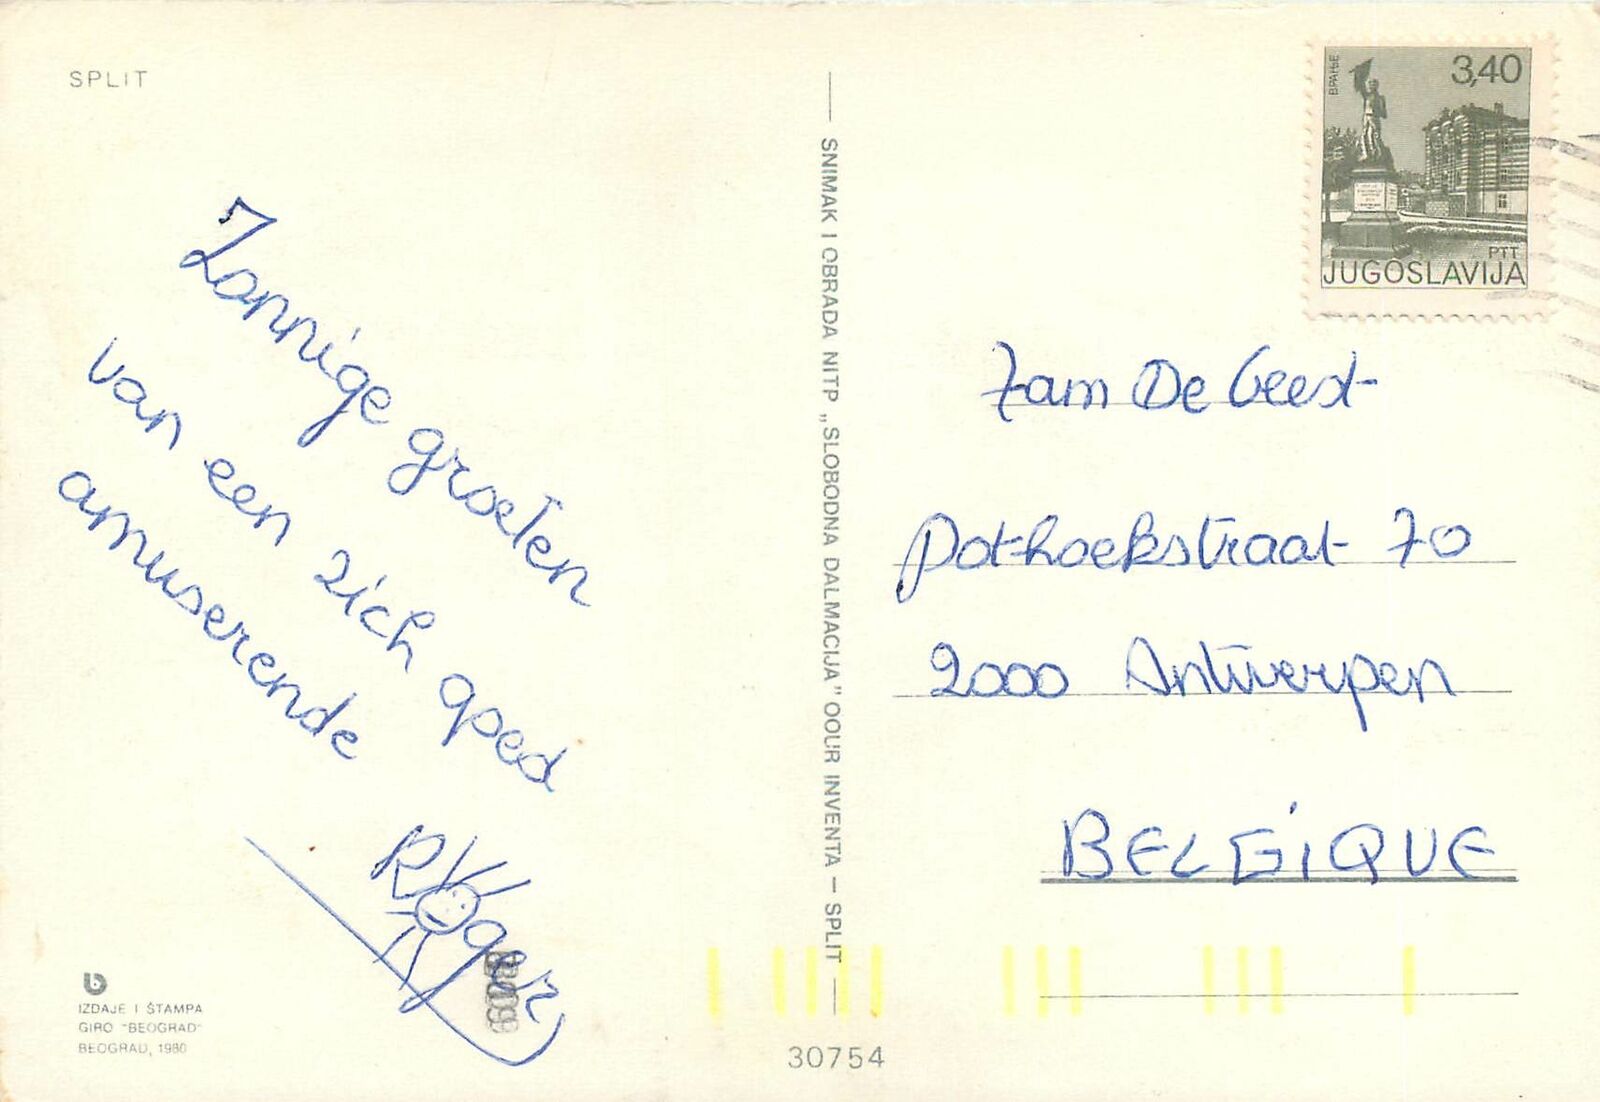 SPLIT
Zonnige groeten
van een zich goed
amuserende
Roger
IZDAJE I ŠTAMPA
GIRO "BEOGRAD"
BEOGRAD, 1980
SNIMAK I OBRADA NITP „SLOBODNA DALMACIJA" OOUR INVENTA — SPLIT
30754
ВРАЊЕ
3,40
PTT
JUGOSLAVIJA
De Geest
Pothoekstraat 70
2000 Antwerpen
BELGIQUE